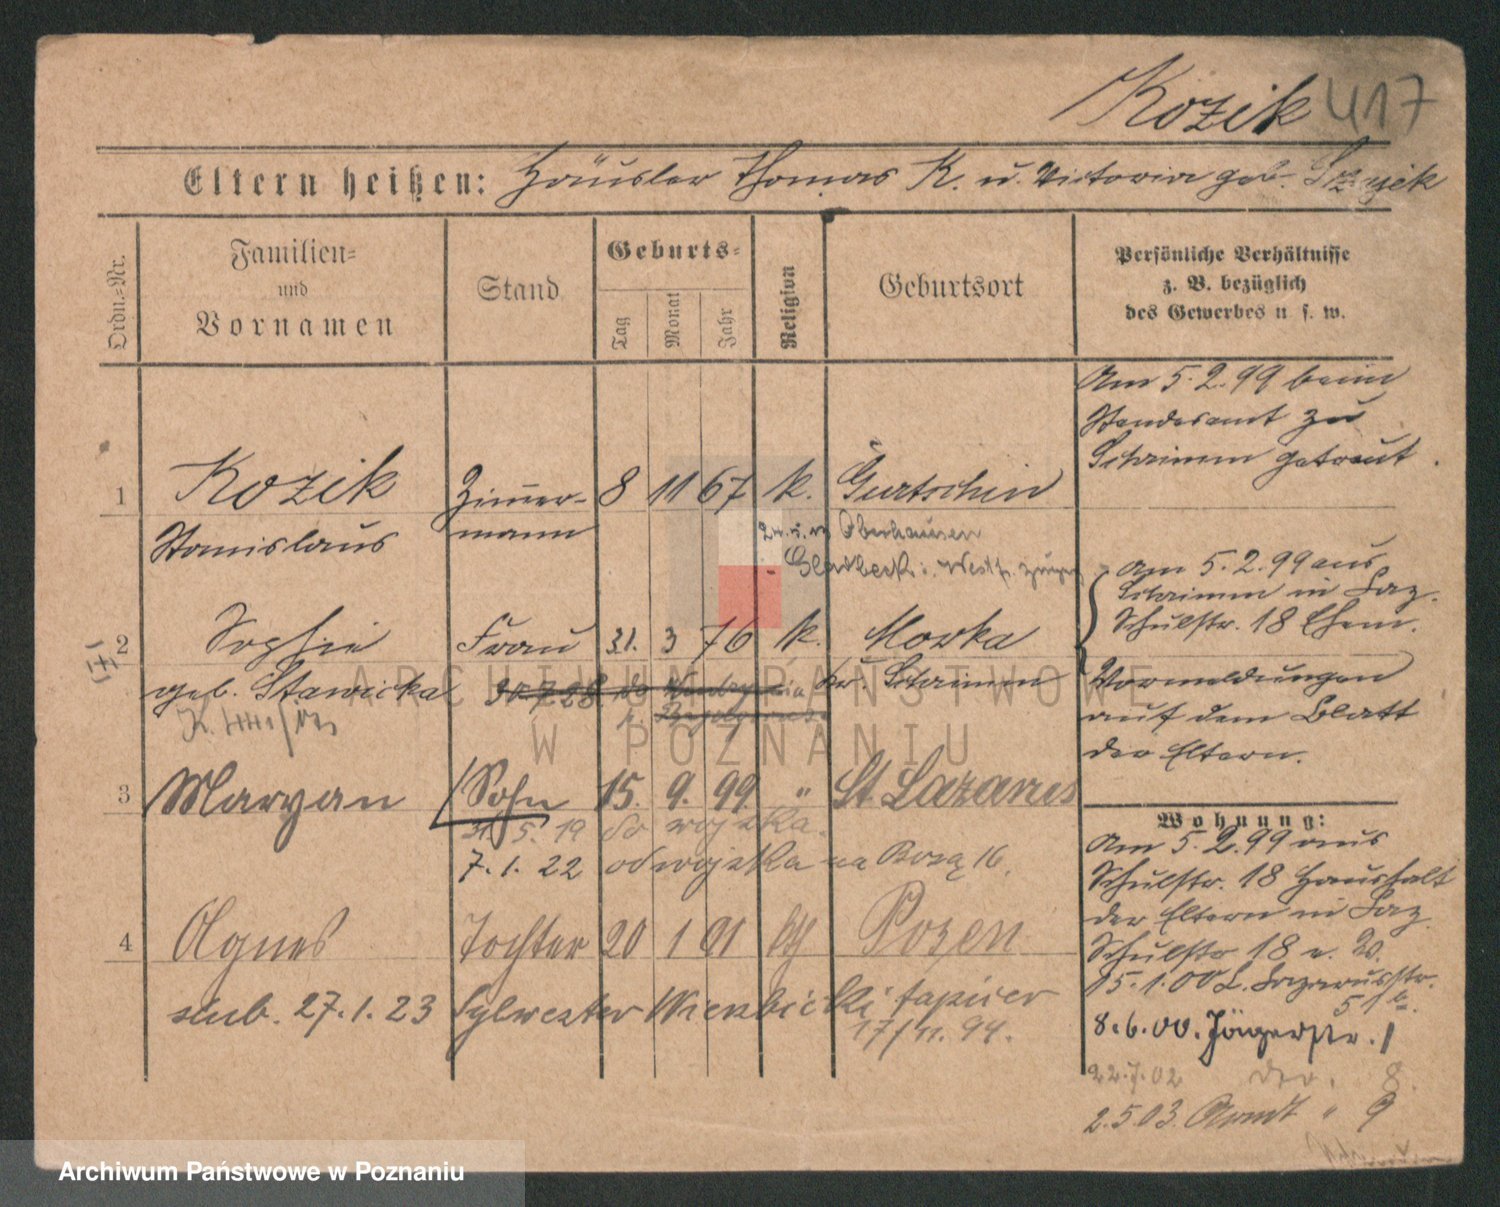 Kozik 417
Eltern heißen: Häusler Thomas K. u. Victoria geb.
Ordn.=Nr.
Familien=
und
Vornamen
Stand
Geburts=
Tag
Monat
Jahr
Religion
Geburtsort
Persönliche Verhältnisse
z. B. bezüglich
des Gewerbes u. s. w.
Am 5.2.99 beim
Standesamt zu
Schrimm getraut.
1 Kozik Zimmer- 8 11 67 k. Gurtschin
Stanislaus mann
Oberhausen
Gladbeck i. Westf.
Am 5.2.99 aus
Schrimm in Laz.
Schulstr. 18
2 Sophie Frau 31. 3 76 k. Morka
geb. Stawicka Kr. Schrimm
Vormeldungen
auf dem Blatt
der Eltern.
3 Maryan Sohn 15. 9. 99 " St. Lazarus
31.5.19 do wojska.
7.1.22 od wojska na 16.
Wohnung:
Am 5.2.99 aus
Schulstr. 18 Haushalt
der Eltern in Laz.
Schulstr 18
15.1.00 L. Lazarusstr.
51
8.6.00. Jägerstr. 1
22.7.02 8.
2.5.03. " 9
4 Agnes Tochter 20 1 01 kth Posen
ślub. 27.1.23 Sylwester tapicer
17/11.94.
ARCHIWUM PAŃSTWOWE
W POZNANIU
Archiwum Państwowe w Poznaniu